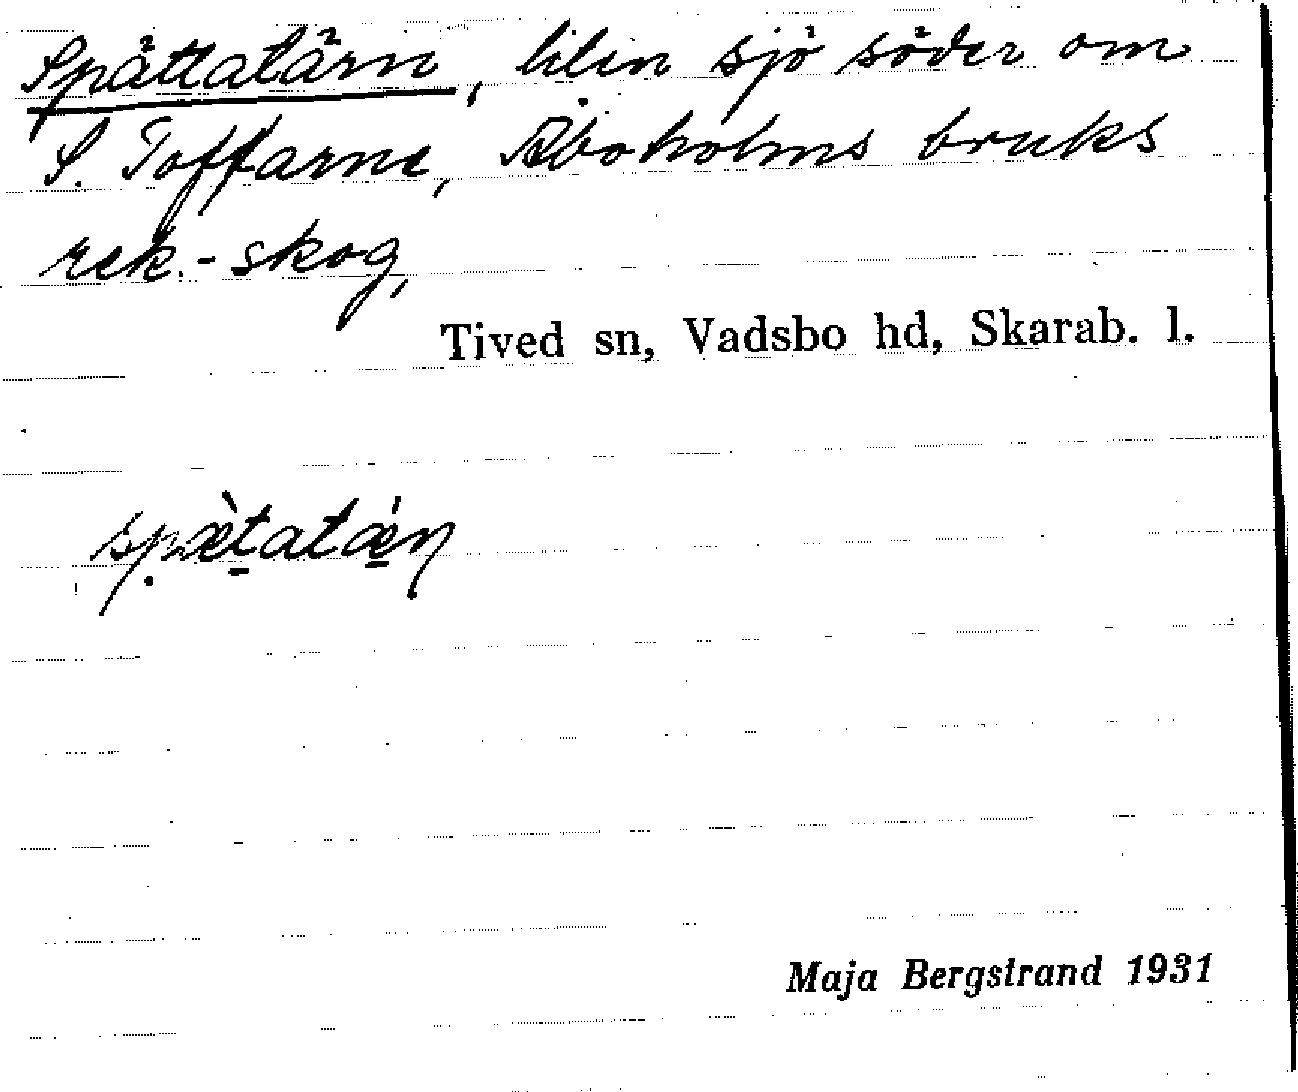 Spättatärn, liten sjö söder om
S. Toffarne, Åboholms bruks
rek.-skog,
Tived sn, Vadsbo hd, Skarab. l.
spæ̀tatǽn
Maja Bergstrand 1931